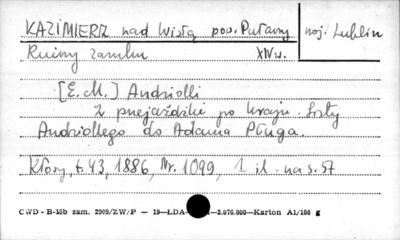 KAZIMIERZ nad Wisłą pow. Puławy woj. Lublin
Ruiny zamku XIV w.
[E.M.] Andriolli
Z przejażdżki po kraju. Listy
Andriollego do Adama Pługa.
Kłosy, t. 43, 1886, Nr. 1099, 1 il. na s. 57
CWD - B-15b zam. 2909/ZW/P — 19—ŁDA- —2.070.000—Karton A1/180 g